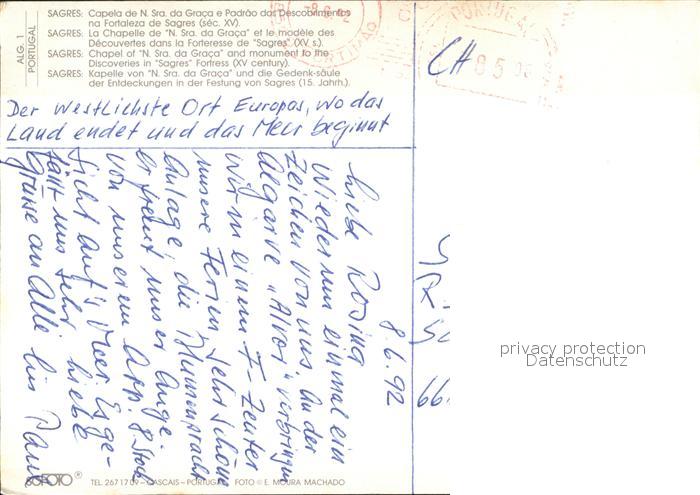 ALG. 1
PORTUGAL
SAGRES: Capela de N. Sra. da Graça e Padrão dos Descobrimentos
na Fortaleza de Sagres (séc. XV).
SAGRES: La Chapelle de "N. Sra. da Graça" et le modèle des
Découvertes dans la Forteresse de "Sagres" (XV s.).
SAGRES: Chapel of "N. Sra. da Graça" and monument to the
Discoveries in "Sagres" Fortress (XV century).
SAGRES: Kapelle von "N. Sra. da Graça" und die Gedenk-säule
der Entdeckungen in der Festung von Sagres (15. Jahrh.).
PORTUGAL
CH
Der westlichste Ort Europas, wo das
Land endet und das Meer beginnt
8.6.92
Liebe Rosina
Wiederum einmal ein
Zeichen von uns. An der
Algarve "Alvor" verbringen
wir in einem F-Zenter
unsere Ferien. Sehr schöne
Anlage, die Blumenpracht
erfreut unser Auge.
Von unserem App. 8. Stock
Sicht auf's Meer. Es ge-
fällt uns sehr. Liebe
Grüsse an Alle bis
66
privacy protection
Datenschutz
SOPOTO ®
TEL. 267 17 09 - CASCAIS - PORTUGAL FOTO © E. MOURA MACHADO